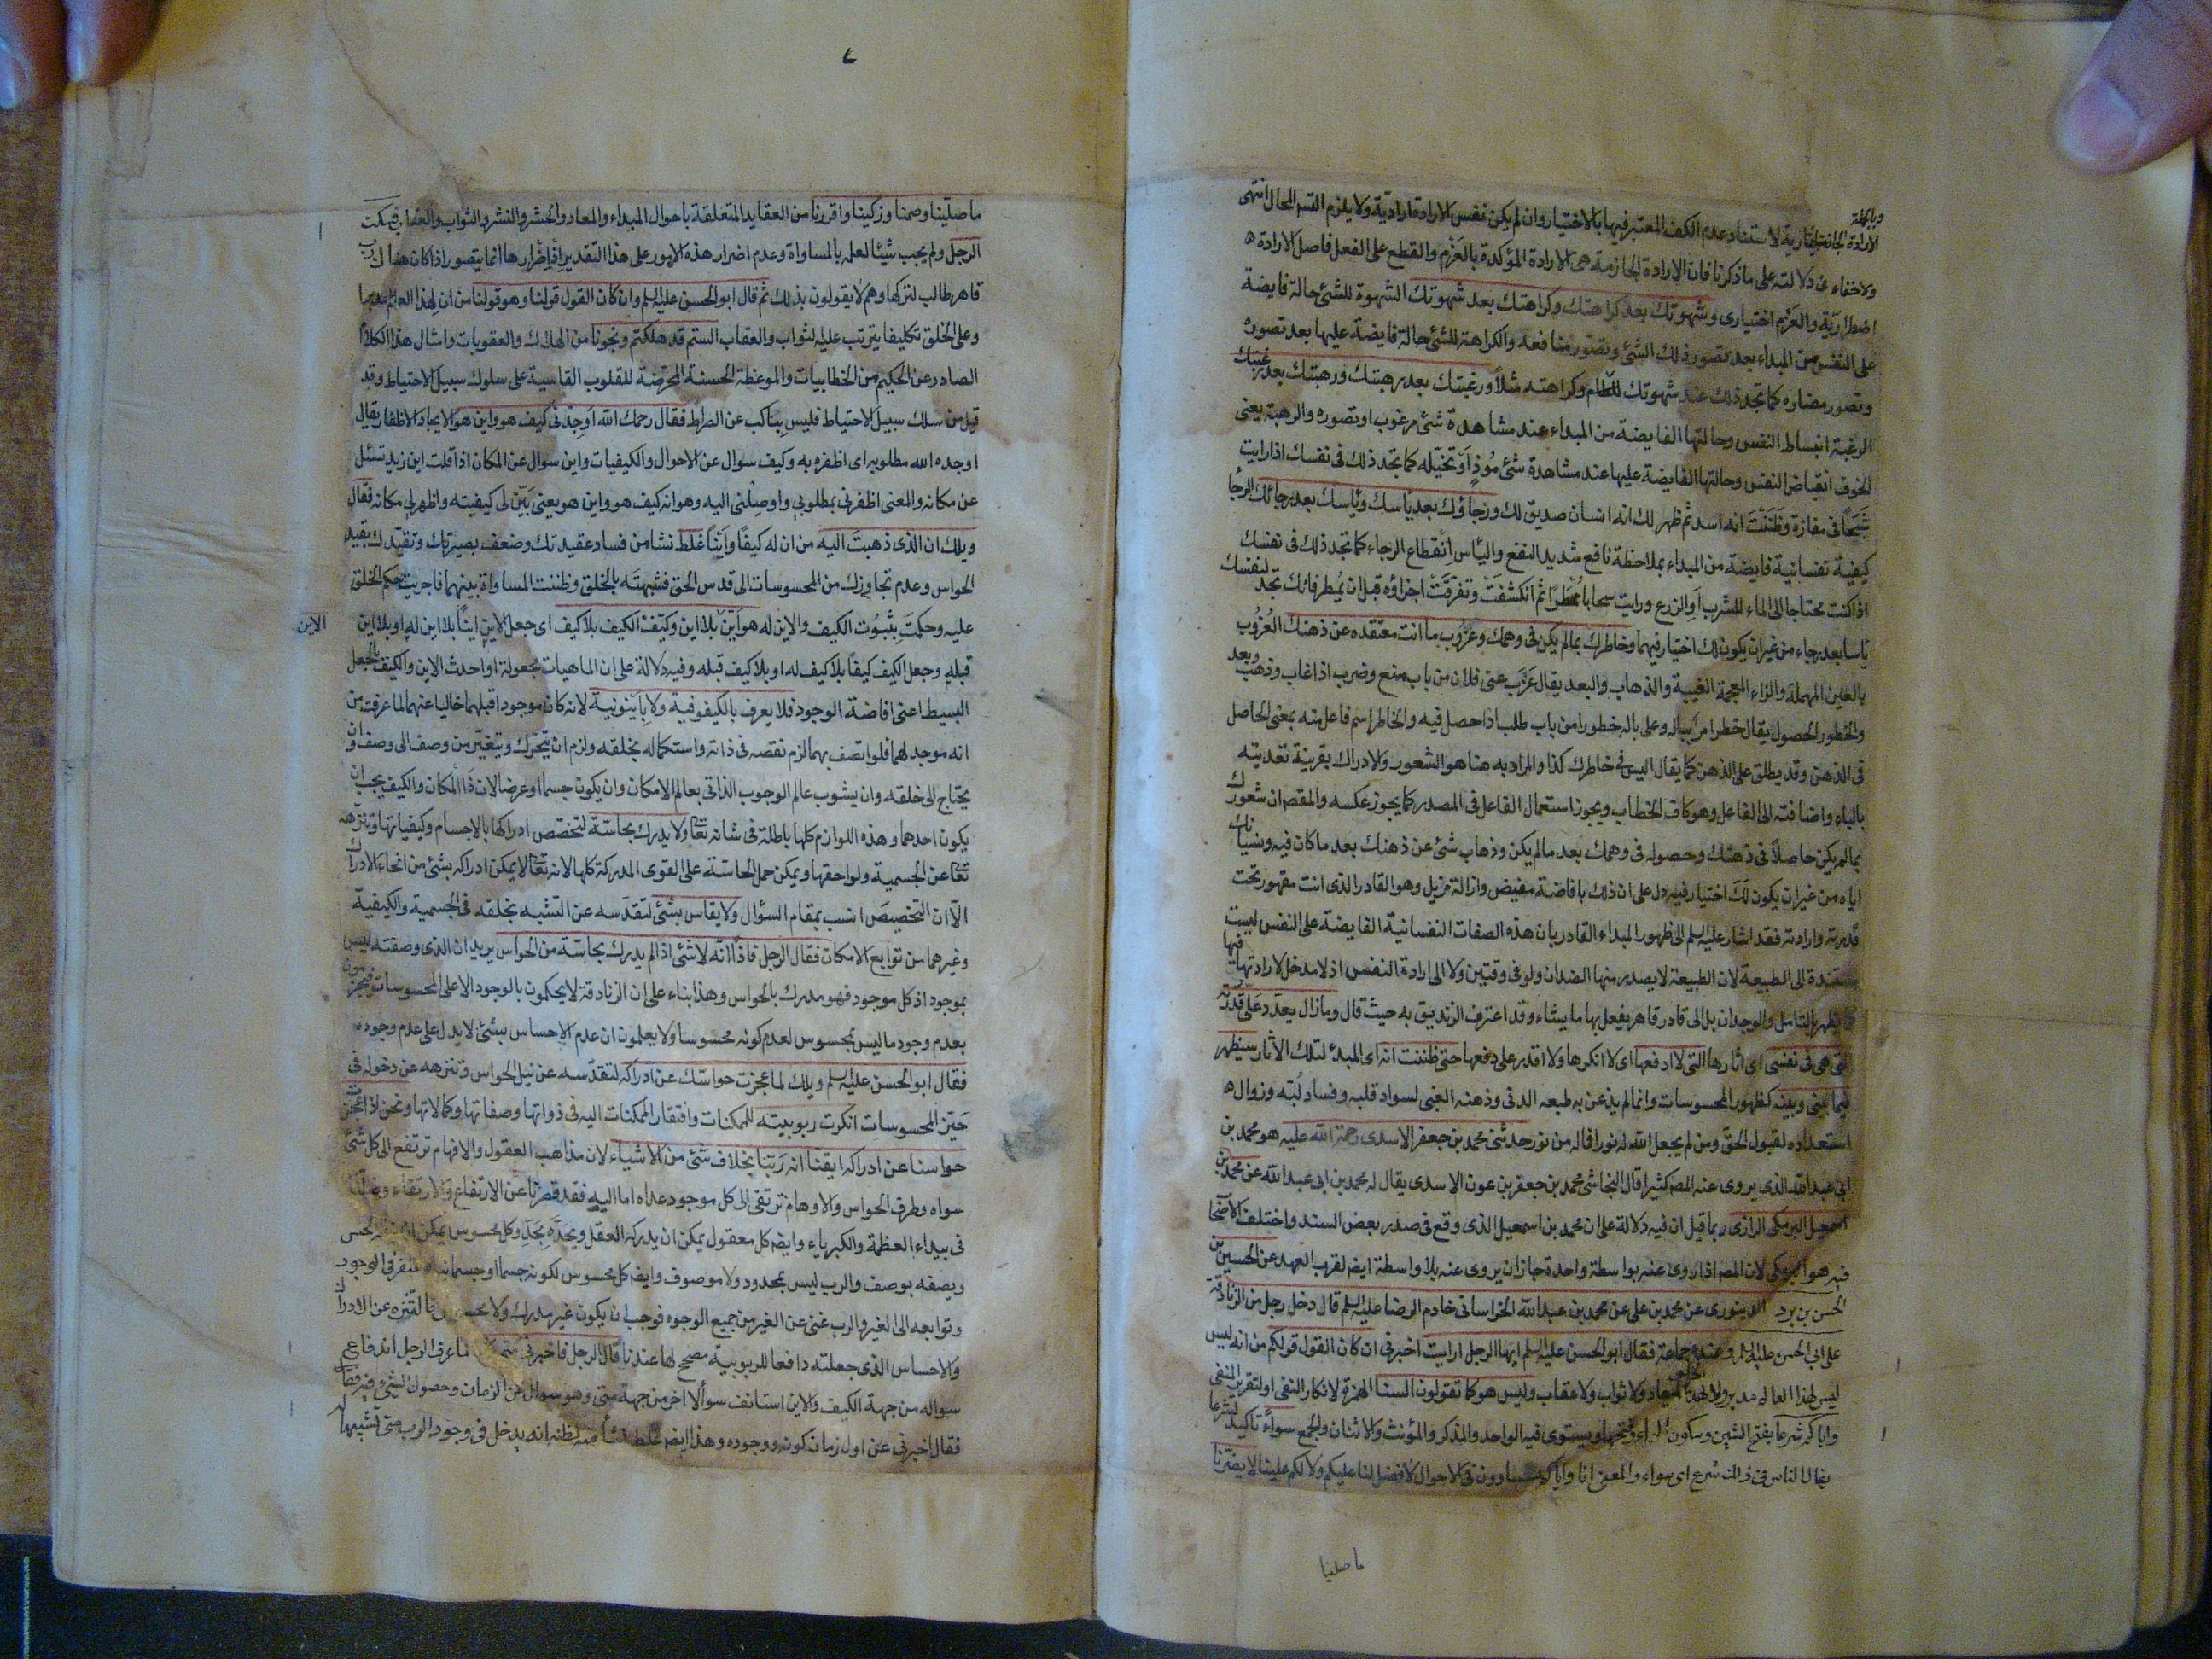 وبالجملة
الارادة الجازمة اختيارية لاستناد عدم الكف المعتبر فيها بالاختيار وان لم يكن نفس الارادة ارادية ولا يلزم القسم المحال انتهى
ولا خفاء في دلالته على ما ذكرنا فان الارادة الجازمة هى الارادة المؤكدة بالعزم والقطع على الفعل فاصل الارادة
اضطرارية والعزم اختيارى وشهوتك بعد كراهتك وكراهتك بعد شهوتك الشهوة للشئ حالة فايضة
على النفس من المبداء بعد تصور ذلك الشئ وتصور منافعه والكراهة للشئ حالة فايضة عليها بعد تصوره
وتصور مضاره كما تجد ذلك عند شهوتك للطعام وكراهته مثلاً ورغبتك بعد رهبتك ورهبتك بعد رغبتك
الرغبة انبساط النفس وحالتها الفايضة من المبداء عند مشاهدة شئ مرغوب او تصوره والرهبة يعنى
الخوف انقباض النفس وحالتها الفايضة عليها عند مشاهدة شئ مُوذٍ او تخيّله كما تجد ذلك في نفسك اذا رايت
شَبَحاً في مفازة وظَنَنْتَ انه اسد ثم ظهر لك انه انسان صديق لك ورجاؤك بعد يأسك ويأسك بعد رجائك الرجأ
كيفية نفسانية فايضة من المبداء بملاحظة نافع شديد النفع واليأس انقطاع الرجاء كما تجد ذلك فى نفسك
اذا كنت محتاجا الى الماء للشرب او الزرع ورايت سحابا مُمطرًا ثم انكشفت وتفرّقت اجزاؤه قبل ان يُمطر فانك تجد لنفسك
يأسا بعد رجاء من غير ان يكون لك اختيار فيهما وخاطرك بمالم يكن في وهمك وعزوب ما انت معتقده عن ذهنك العُزُوب
بالعين المهملة والزاء المعجمة الغيبة والذهاب والبعد يقال عَزَبَ عنى فلان من باب منع وضرب اذا غاب وذهب وبعد
والخطور الحصول يقال خطر امر بباله وعلى باله خطورا من باب طلب اذا حصل فيه والخاطر اسم فاعل منه بمعنى الحاصل
فى الذهن وقد يطلق على الذهن كما يقال اليس في خاطرك كذا والمراد به هنا هو الشعور والادراك بقرينة تعديته
بالباء واضافته الى الفاعل وهو كاف الخطاب ويجوز استعمال الفاعل فى المصدر كما يجوز عكسه والمقصد ان شعورك
بمالم يكن حاصلاً فى ذهنك وحصوله فى وهمك بعد مالم يكن وذهاب شئ عن ذهنك بعد ما كان فيه ونسيانك
اياه من غير ان يكون لك اختيار فيه دل على ان ذلك بافاضة مفيض وازالة مزيل وهو القادر الذى انت مقهور تحت
قدرته وارادته فقد اشار عليه السلم الى ظهور المبداء القادر بان هذه الصفات النفسانية الفايضة على النفس ليست
مستندة الى الطبيعة لان الطبيعة لا يصدر منها الضدان ولو في وقتين ولا الى ارادة النفس اذ لا مدخل لارادتها فيها
كما يظهر بالتامل والوجدان بل الى قادر قاهر يفعل بها ما يشاء وقد اعترف الزنديق به حيث قال وما زال يعدّد على قدرته
التى هى فى نفسى اى اثارها التى لا ادفعها اى لا انكرها ولا اقدر على دفعها حتى ظننت انه اى المبدئ لتلك الآثار سيظهر
فيما بينى وبينه كظهور المحسوسات وانما لم يذعن به طبعه الدنى وذهنه الغبى لسواد قلبه وفساد لُبّه وزوال
استعداده لقبول الحق ومن لم يجعل الله له نورا فما له من نور حدثنى محمد بن جعفر الاسدى رحمة الله عليه هو محمد بن
ابى عبد الله الذى يروى عنه المصـ كثيرا قال النجاشى محمد بن جعفر بن عون الاسدى يقال له محمد بن ابى عبد الله عن محمد بن
اسمعيل البرمكى الرازى ربما قيل ان فيه دلالة على ان محمد بن اسمعيل الذى وقع فى صدر بعض السند واختلف الاصحاب
فيه هو البرمكى لان المصـ اذا روى عنه بواسطة واحدة جاز ان يروى عنه بلا واسطة ايضـ لقرب العهد عن الحسين بن
الحسن بن برد الدينورى عن محمد بن على عن محمد بن عبد الله الخراسانى خادم الرضا عليه السلم قال دخل رجل من الزنادقة
على ابى الحسن عليه السلم وعنده جماعة فقال ابو الحسن عليه السلم ايها الرجل ارايت اخبرنى ان كان القول قولكم من انه ليس
ليس لهذا العالم مدبر ولا لهذا الخلق معاد ولا ثواب ولا عقاب وليس هو كما تقولون السنا الهمزة لانكار النفى او لتقرير المنفى
واياكم شرعاً بفتح الشين وسكون الراء وفتحها ويستوى فيه الواحد والمذكر والمؤنث والاثنان والجمع سواءً تاكيد لشرعا
يقال الناس في ذلك شرع اى سواء والمعنى انا واياكم متساوون فى الاحوال لا فضل لنا عليكم ولا لكم علينا لا يضرّنا
ما صلينا
ما صلّينا وصمنا وزكّينا واقررنا من العقايد المتعلقة باحوال المبداء والمعاد والحشر والنشر والثواب والعقاب فسكت
الرجل ولم يجب شيئا لعلمه بالمساواة وعدم اضرار هذه الامور على هذا التقدير اذ اضرارها انما يتصور اذا كان هناك رب
قاهر طالب لتركها وهم لا يقولون بذلك ثم قال ابو الحسن عليه السلم وان كان القول قولنا وهو قولنا من ان لهذا العالم مدبرا
وعلى الخلق تكليفا يترتب عليه الثواب والعقاب الستم قد هلكتم ونجونا من الهلاك والعقوبات وامثال هذا الكلام
الصادر عن الحكيم من الخطابيات والموعظة الحسنة المحرّضة للقلوب القاسية على سلوك سبيل الاحتياط وقد
قيل من سلك سبيل الاحتياط فليس بناكب عن الصراط فقال رحمك الله اوجِدنى كيف هو واين هو الايجاد الاظفار يقال
اوجده الله مطلوبه اى اظفره به وكيف سوال عن الاحوال والكيفيات واين سوال عن المكان اذا قلت اين زيد تسئل
عن مكانه والمعنى اظفرنى بمطلوبى واوصِلنى اليه وهو انه كيف هو واين هو يعنى بَيّن لى كيفيته واظهر لى مكانه فقال
ويلك ان الذى ذهبتَ اليه من ان له كيفًا وأيْنًا غلط نشا من فساد عقيدتك وضعف بصيرتك وتقيّدك بقيد
الحواس وعدم تجاوزك من المحسوسات الى قدس الحق فشبهته بالخلق وظننت المساواة بينهما فاجريت حكم الخلق
عليه وحكمتَ بثبوت الكيف والاين له هو اَيّنَ الاين بلا اين وكيّف الكيف بلا كيف اى جعل الاين اينًا بلا اين له او بلا اين
الاين
قبله وجعل الكيف كيفًا بلا كيف له او بلا كيف قبله وفيه دلالة على ان الماهيات مجعولة او احدث الاين والكيف بالجعل
البسيط اعنى افاضة الوجود فلا يعرف بالكيفوفية ولا باينونية لانه كان موجودا قبلهما خاليا عنهما لما عرفت من
انه موجد لهما فلو اتصف بهما لزم نقصه فى ذاته واستكماله بخلقه ولزم ان يتحرك ويتغيّر من وصف الى وصف وان
يحتاج الى خلقه وان يشوب عالم الوجوب الذاتى بعالم الامكان وان يكون جسما او عرضا لان ذا المكان والكيف يجب ان
يكون احدهما وهذه اللوازم كلها باطلة فى شانه تعا ولا يدرك بحاسّة لتخصّص ادراكها بالاجسام وكيفياتها وتنزّهه
تعا عن الجسمية ولواحقها ويمكن حمل الحاسّة على القوى المدركة كلها لانه تعا لا يمكن ادراكه بشئ من انحاء الادراك
الّا ان التخصيص انسب بمقام السؤال ولا يقاس بشئ لتقدّسه عن التشبه بخلقه فى الجسمية والكيفيّة
وغيرهما من توابع الامكان فقال الرجل فاذًا انّه لا شئ اذا لم يدرك بحاسّة من الحواس يريد ان الذى وصفته ليس
بموجود اذ كل موجود فهو مدرك بالحواس وهذا بناء على ان الزنادقة لا يحكمون بالوجود الا على المحسوسات فيجزمون
بعدم وجود ما ليس بمحسوس لعدم كونه محسوسا ولا يعلمون ان عدم الاحساس بشئ لا يدل على عدم وجوده
فقال ابو الحسن عليه السلم ويلك لما عجزت حواسّك عن ادراكه لتقدّسه عن نيل الحواس وتنزهه عن دخوله فى
حَيّز المحسوسات انكرت ربوبيته للممكنات وافتقار الممكنات اليه فى ذواتها وصفاتها وكمالاتها ونحن اذا عجزت
حواسنا عن ادراكه ايقنا انه ربّنا بخلاف شئ من الاشياء لان مذاهب العقول والافهام ترتفع الى كل شئ
سواه وطرق الحواس والاوهام ترتقى الى كل موجود عداه اما اليه فقد قصرتا عن الارتفاع والارتقاء
فى بيداء العظمة والكبرياء وايضـ كل معقول يمكن ان يدركه العقل ويحدّه بحدّ وكل محسوس يمكن الحس
ويصفه بوصف والرب ليس بمحدود ولا موصوف وايضـ كل محسوس لكونه جسما او جسمانيا مفتقر فى الوجود
وتوابعه الى الغير والرب غنى عن الغير من جميع الوجوه فوجب ان يكون غير مدرك ولا محسوس فالتنزه عن الادراك
والاحساس الذى جعلته دافعا للربوبيّة مصحح لها عندنا قال الرجل فاخبرنى متى كان لما عرف الرجل اندفاع
سواله من جهة الكيف والاين استانف سوألا اخر من جهة متى وهو سوال عن الزمان وحصول الشئ فيه
فقال اخبرنى عن اول زمان كونه ووجوده وهذا ايضـ غلط نشأ منه لظنه انه يدخل فى وجود الرب متى تشبيها له